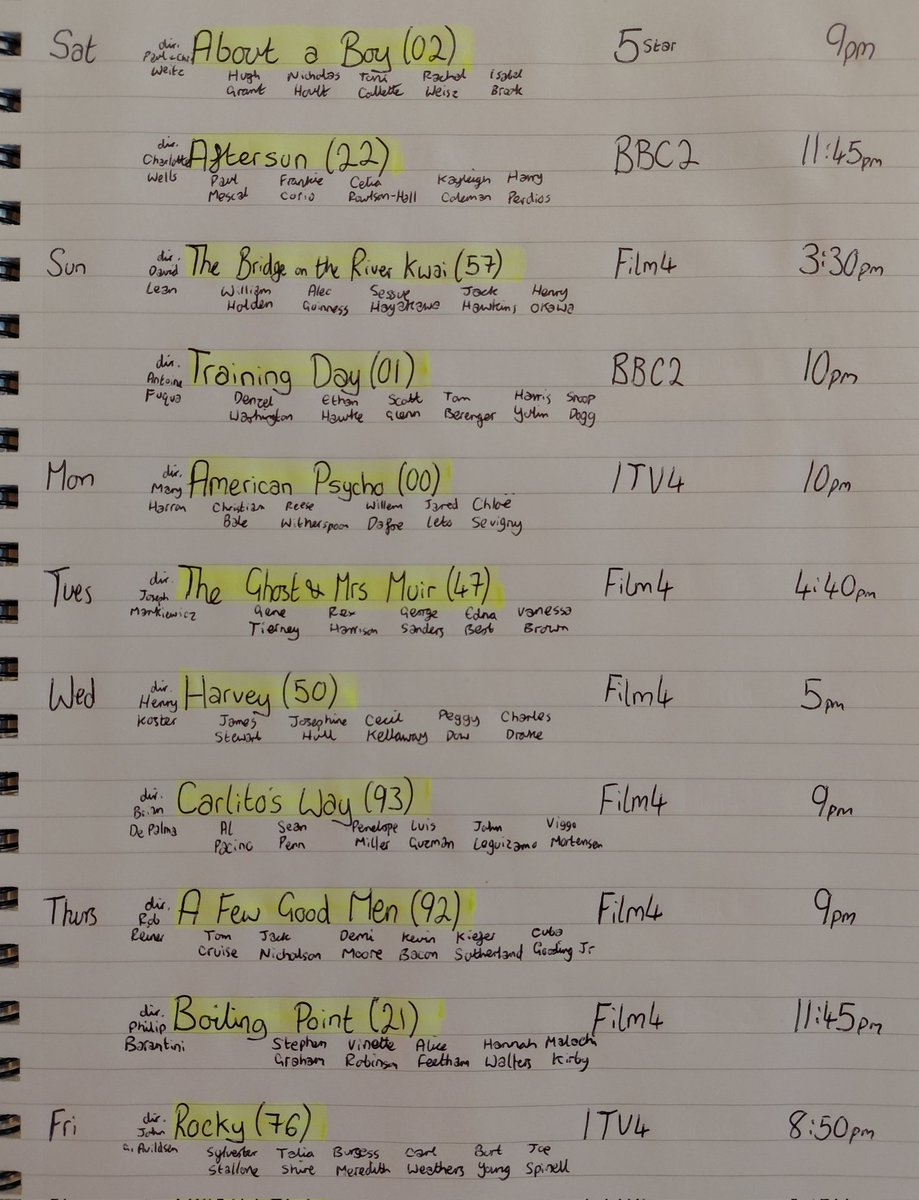 Sat dir. About a Boy (02) 5 Star 9pm
Weitz Hugh Nicholas Toni Rachel Isabel
Grant Hoult Collette Weisz Brook
dir. Aftersun (22) BBC2 11:45pm
Charlotte
Wells Paul Frankie Celia Kayleigh Harry
Mescal Corio Rowlson-Hall Coleman Perdios
Sun dir. The Bridge on the River Kwai (57) Film4 3:30pm
David
Lean William Alec Sessue Jack Henry
Holden Guinness Hayakawa Hawkins Okawa
dir. Training Day (01) BBC2 10pm
Antoine
Fuqua Denzel Ethan Scott Tom Harris Snoop
Washington Hawke Glenn Berenger Yulin Dogg
Mon dir. American Psycho (00) ITV4 10pm
Mary
Harron Christian Reese Willem Jared Chloë
Bale Witherspoon Dafoe Leto Sevigny
Tues dir. The Ghost & Mrs Muir (47) Film4 4:40pm
Joseph
Mankiewicz Gene Rex George Edna Vanessa
Tierney Harrison Sanders Best Brown
Wed dir. Harvey (50) Film4 5pm
Henry
Koster James Josephine Cecil Peggy Charles
Stewart Hull Kellaway Dow Drake
dir. Carlito's Way (93) Film4 9pm
Brian
De Palma Al Sean Penelope Luis John Viggo
Pacino Penn Miller Guzman Leguizamo Mortensen
Thurs dir. A Few Good Men (92) Film4 9pm
Rob
Reiner Tom Jack Demi Kevin Kiefer Cuba
Cruise Nicholson Moore Bacon Sutherland Gooding Jr
dir. Boiling Point (21) Film4 11:45pm
Philip
Barantini Stephen Vinette Alice Hannah Malachi
Graham Robinson Feetham Walters Kirby
Fri dir. Rocky (76) ITV4 8:50pm
John
G. Avildsen Sylvester Talia Burgess Carl Burt Joe
Stallone Shire Meredith Weathers Young Spinell